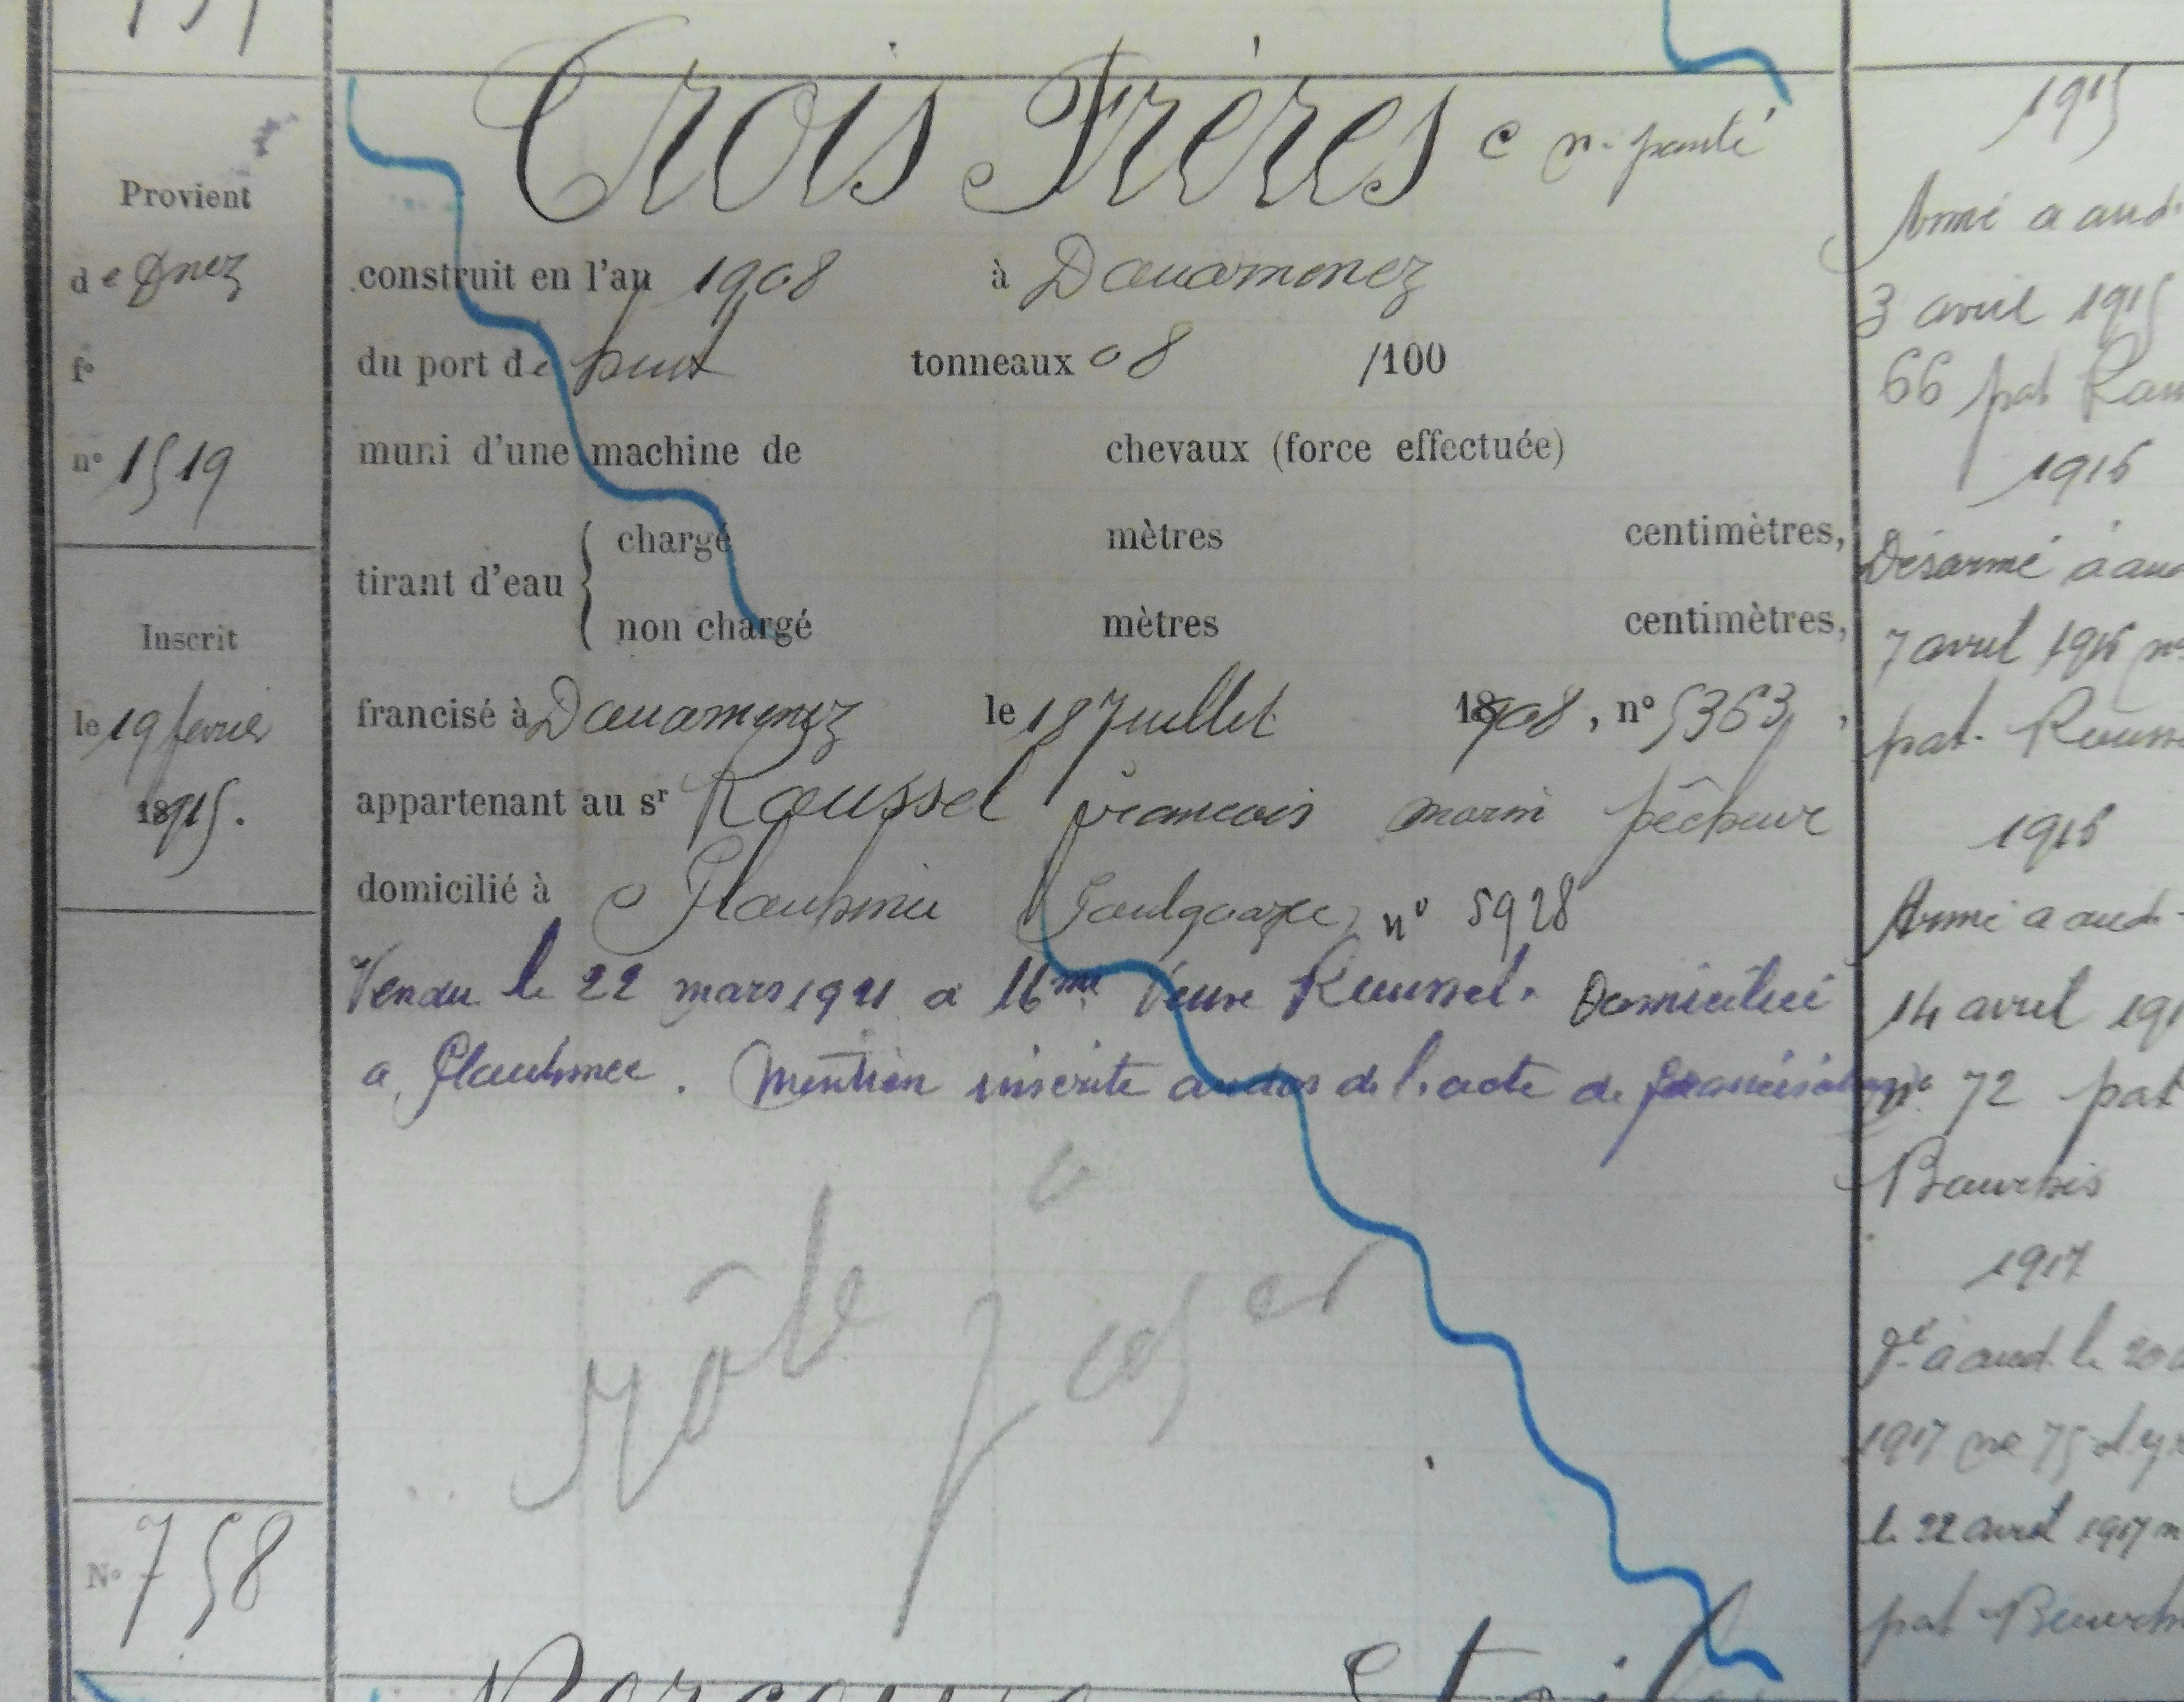 Trois Frères c n. ponté
Provient
de Dnez
construit en l'an 1908 à Douarnenez
f°
du port de huit tonneaux 08 /100
n° 1519
muni d'une machine de chevaux (force effectuée)
tirant d'eau
chargé mètres centimètres,
non chargé mètres centimètres,
Inscrit
le 19 février
1915.
francisé à Douarnenez le 18 Juillet 1908, n° 5363,
appartenant au sr Roussel François marin pêcheur
domicilié à Plouhinec Poulgoazec n° 5928
Vendu le 22 mars 1921 a Mme Veuve Roussel. Domiciliée
a Plouhinec. Mention inscrite au dos de l'acte de francisation
rôle
N° 758
1915
Armé a aud.
3 avril 1915
66 pat
1916
Désarmé à aud
7 avril 1916 n°
pat. Rouss
1916
Armé a aud.
14 avril 191
n° 72 pat
Bourhis
1917
Dé a aud. le 20
1917 n° 75
le 22 avril 1917 n
pat Bourh